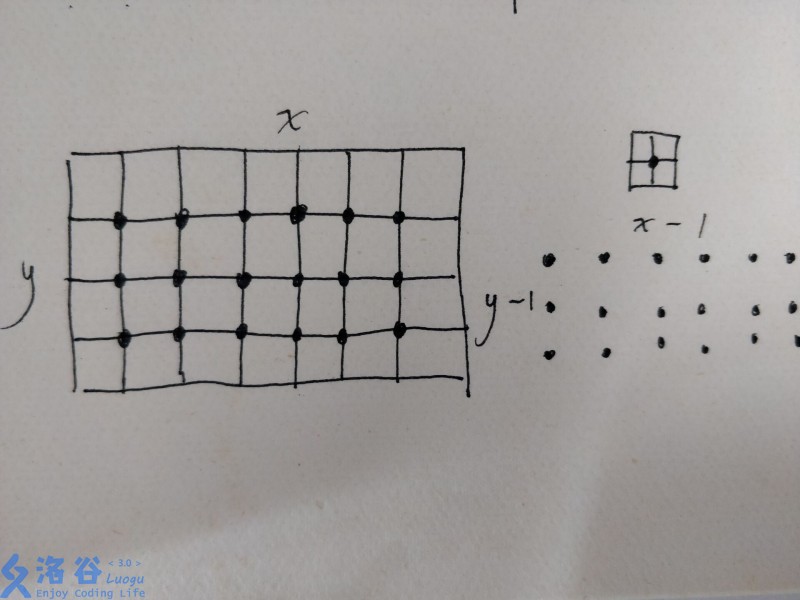 x
y
x - 1
y - 1
洛谷 < 3.0 > Luogu
Enjoy Coding Life